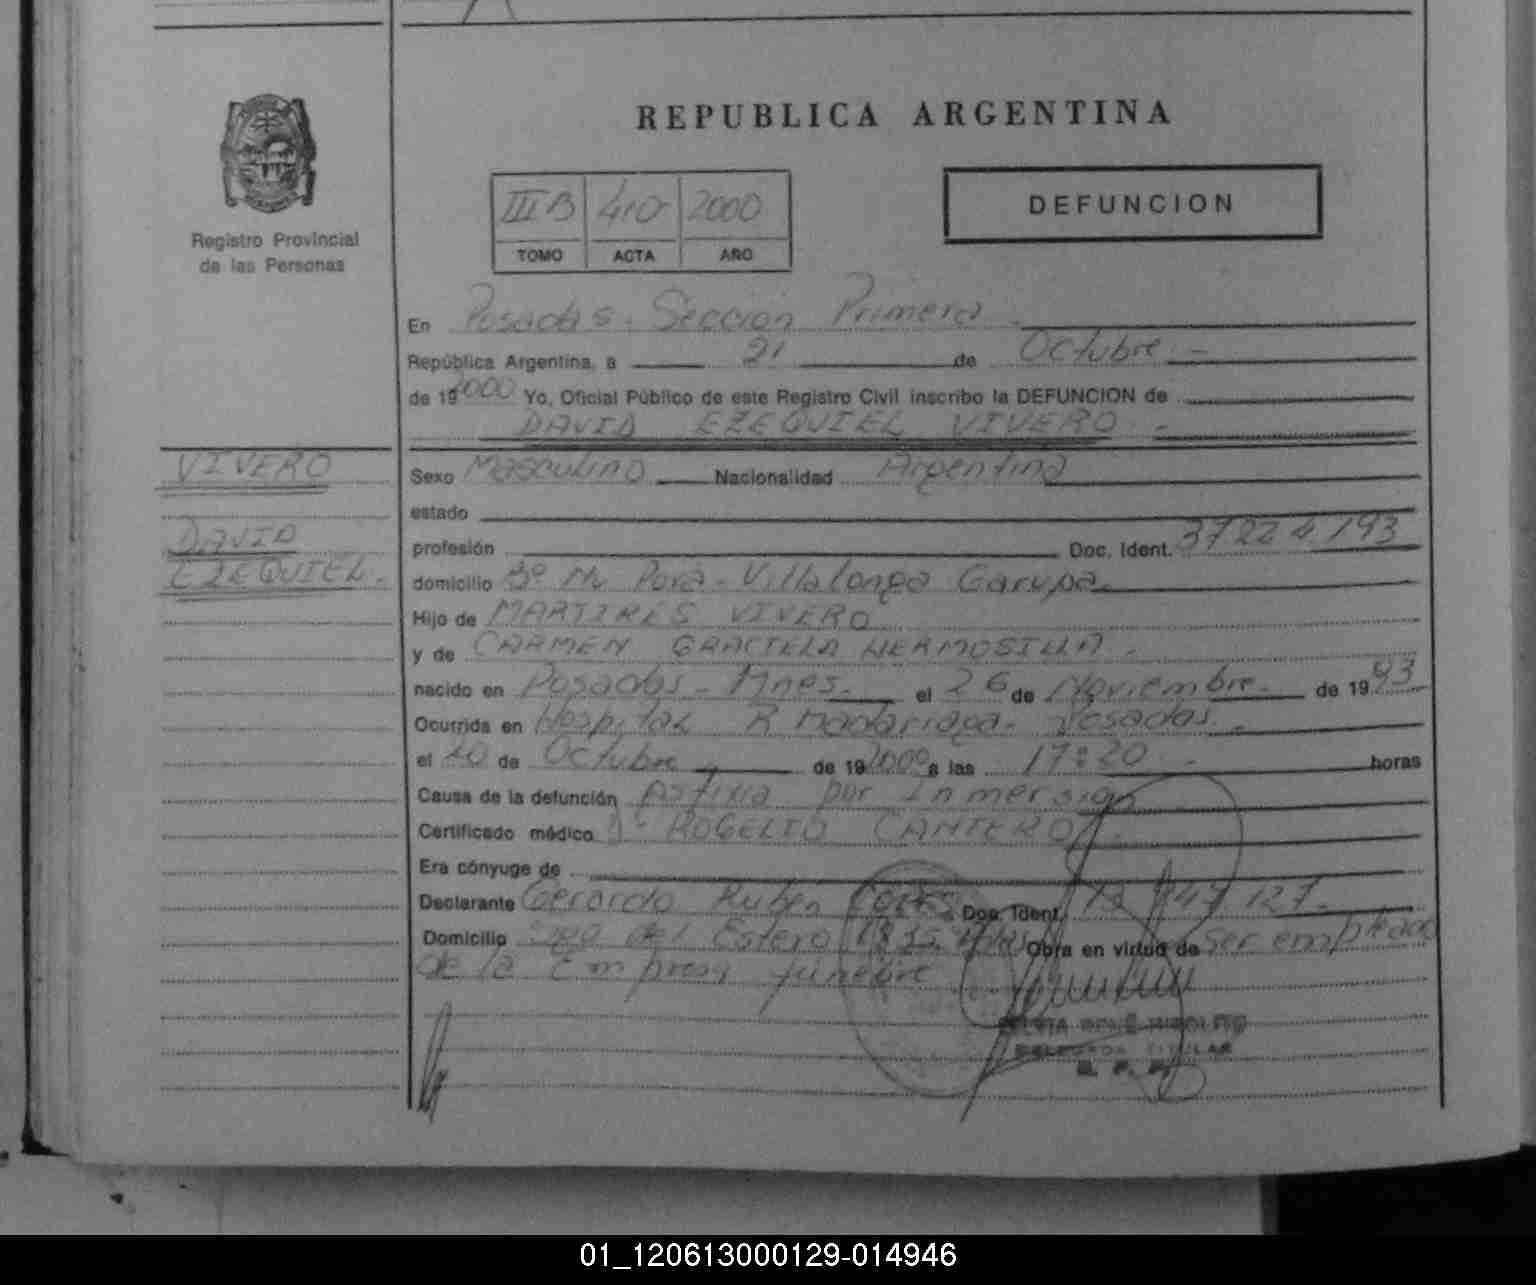 REPUBLICA ARGENTINA
III B 410 2000
TOMO ACTA AÑO
DEFUNCION
Registro Provincial
de las Personas
En Posadas. Sección Primera
República Argentina, a 21 de Octubre
de 19 2000 Yo, Oficial Público de este Registro Civil inscribo la DEFUNCION de
DAVID EZEQUIEL VIVERO
VIVERO
DAVID
EZEQUIEL.
Sexo Masculino Nacionalidad Argentina
estado
profesión Doc. Ident. 37224193
domicilio Bº Mu Porá - Villalonga Garupa.
Hijo de MARTIRES VIVERO
y de CARMEN GRACIELA HERMOSILLA.
nacido en Posadas - Mnes. el 26 de Noviembre. de 19 93
Ocurrida en Hospital R. Madariaga. Posadas.
el 20 de Octubre de 19 2000 a las 17:20 horas
Causa de la defunción Asfixia por Inmersión
Certificado médico Dr ROGELIO CANTERO
Era cónyuge de
Declarante Gerardo Ruben Doc. Ident. 127.
Domicilio Sgo del Estero Obra en virtud de ser empleado
de la Empresa fúnebre
DELEGADA TITULAR
01_120613000129-014946